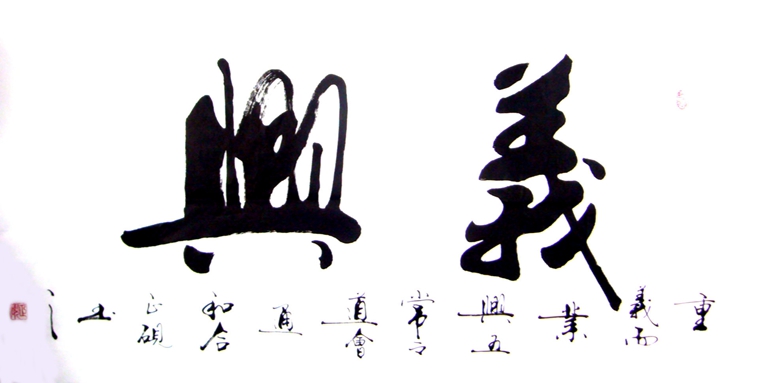 義興
重義而業興五常之道會通和合正硯书